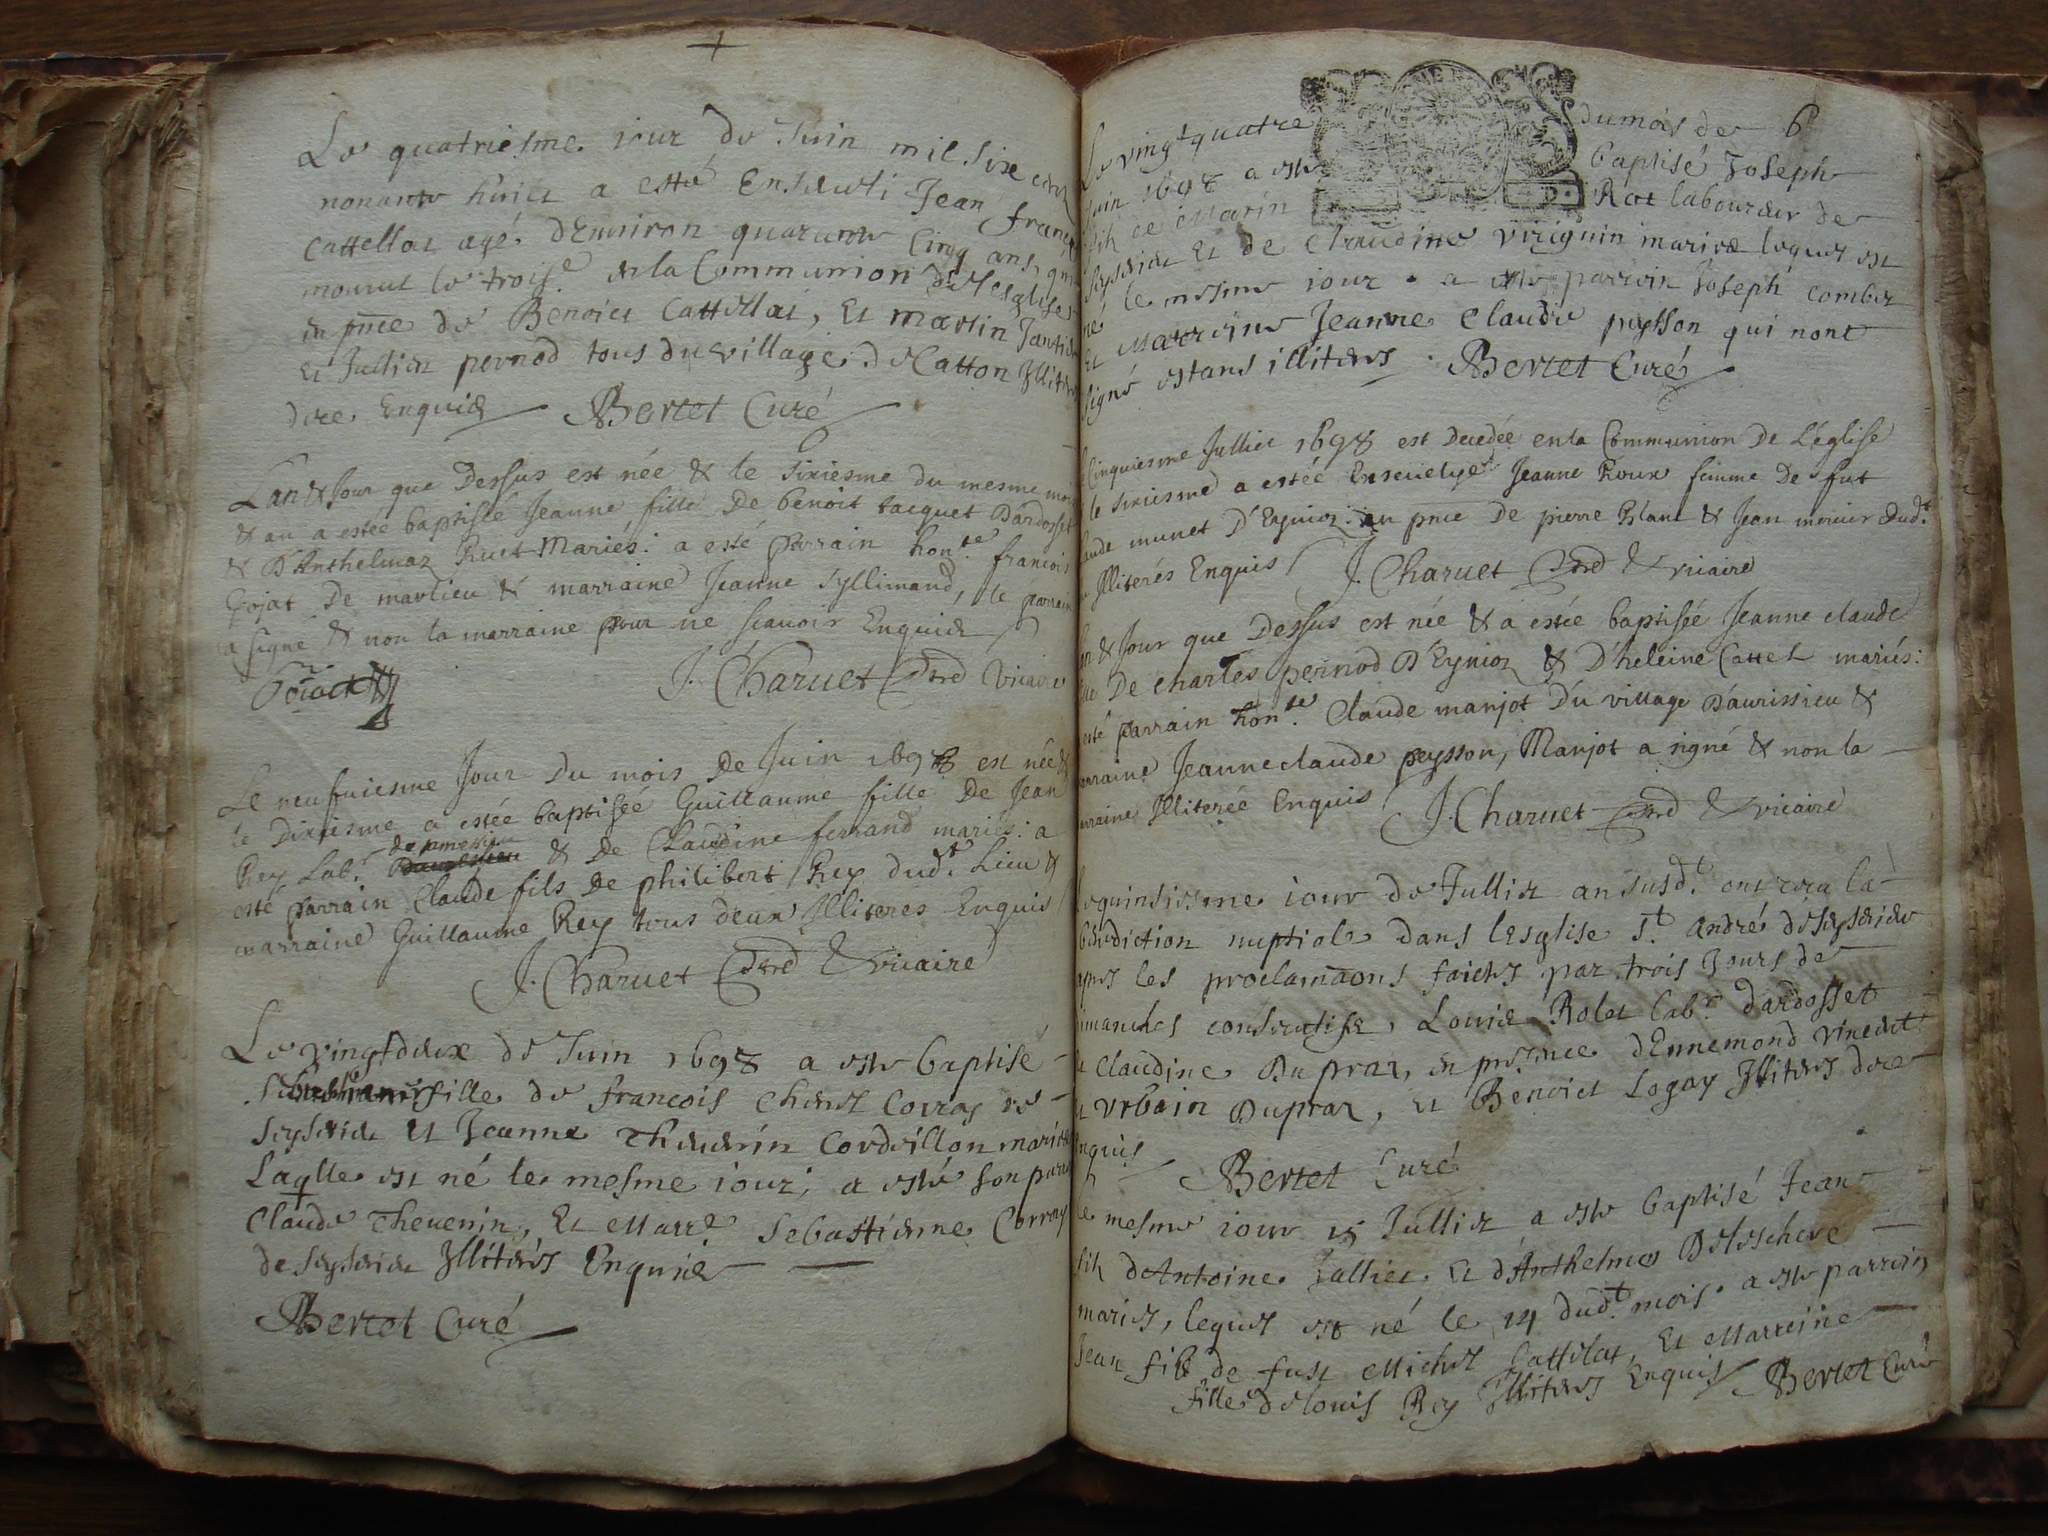 Le quatriesme iour de Juin mil six cent
nonante huict a esté Enseueli Jean françois
Cattellat agé d'Enuiron quarante Cinq ans, qui
mourut le trois.e en la Communion de l'esglise
en pnce de Benoict Cattellat, Et martin
Et Jullien pernod tous du village de Catton Illiteres
de ce Enquis Bertet Curé
L'an & Jour que Dessus est née & le sixiesme du mesme mois
& an a estée baptisée Jeanne fille De benoit Jacquet D'ardosset
& D'Anthelmaz Ruet Mariés: a esté Parrain hon.te francois
Gojat De marlieu & marraine Jeanne Syllimand, le parrain
a signé & non la marraine pour ne scauoir Enquise
J. Charuet vicaire
Le neufuiesme Jour Du mois De Juin 1698 est née &
le Dixiesme a estée baptisée Guillaume fille De Jean
Rey Lab.r & De Claudine ferrand mariés: a
esté Parrain Claude fils De philibert Rey dud.t Lieu &
marraine Guillaume Rey tous deux Illiteres Enquis
J. Charuet & vicaire
Le vingtdeux de Juin 1698 a este baptisé
fille de francois Corray de
Seyssieu et Jeanne Theuenin Cordeillon mariez
Laqlle est né le mesme iour; a esté son parain
Claude Theuenin, Et Marr.e Sebastienne Corray
de Illiteres Enquis
Bertet Curé
Le vingt quatre du mois de 6
Juin 1698 a este baptisé Joseph
filz de Marin Rat laboureur de
Et de Claudine mariez lequel est
né le mesme iour. a este parrein Joseph combet
Et Marreine Jeanne Claude peysson qui nont
signé estans illiteres. Bertet Curé
Cinquiesme Julliet 1698 est Decedée en la Communion De L'église
& le sixiesme a estée Enseuelye Jeanne Roux femme De fut
Claude munet D'Eynioz en pnce De pierre Blanc & Jean mercier dud.t
Illiterés Enquis J. Charuet & vicaire
L'an & Jour que Dessus est née & a estée baptisée Jeanne claude
fille De charles pernod D'Eynioz & D'heleine Cattel mariés:
a esté Parrain hon.te Claude manjot Du village D'aurissieu &
marraine Jeanneclaude peysson, Manjot a signé & non la
marraine Illiterée Enquis J. Charuet & vicaire
Le quinsiesme iour de Julliet an susd.t ont receu la
benediction nuptiale dans l'esglise S.t André de
apres les proclamaons faictes par trois Jours de
dimanches consecutifs, Louis Rolet Lab.r dardosset
Et Claudine Dupraz, en presence dEnnemond vincent
Et Vrbain Dupraz, Et Benoict Logay Illiteres de ce
Enquis Bertet Curé
le mesme iour 15 Julliet a este baptisé Jean
filz dAntoine Et d'Anthelme
mariez, lequel est né le 14 dud.t mois. a este parrein
Jean filz de fust Michel Cattelat, Et Marreine
fille de louis Rey Illiteres Enquis Bertet Curé